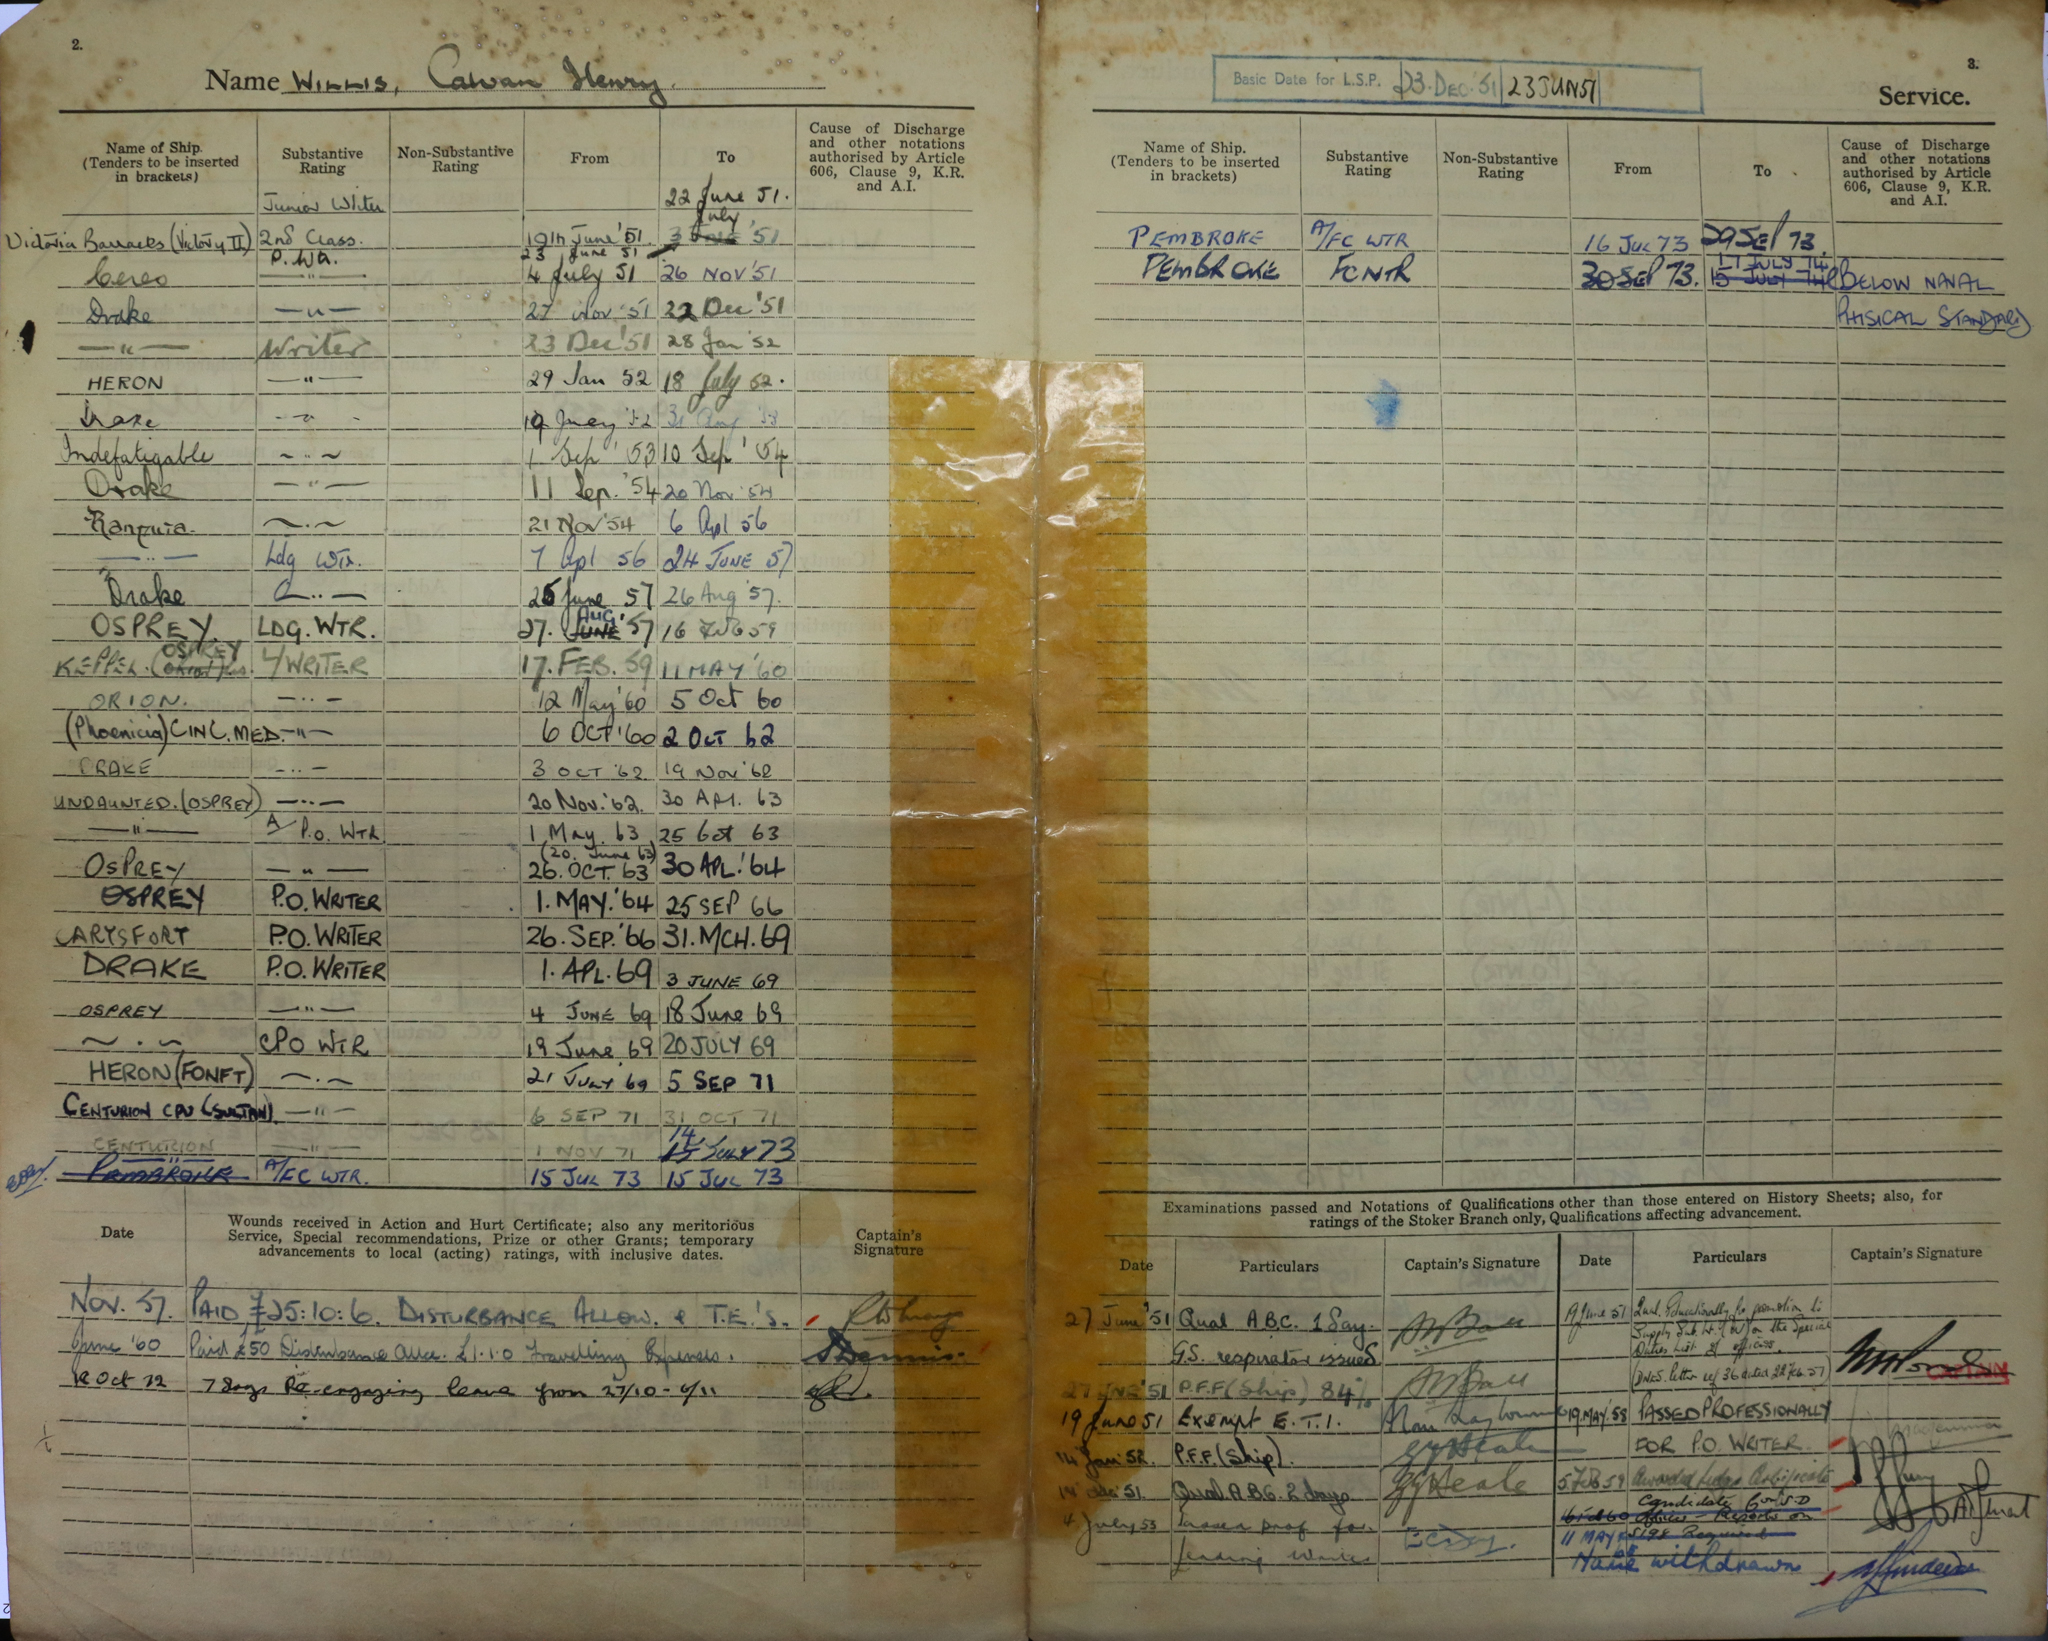 2.
Name WILLIS, Calvan Henry.
Name of Ship. (Tenders to be inserted in brackets)
Substantive Rating
Non-Substantive Rating
From
To
Cause of Discharge and other notations authorised by Article 606, Clause 9, K.R. and A.I.
Junior Writer 22 June 51.
Victoria Barracks (Victory II) 2nd Class. 19th June '51 3 July '51
P. Wtr. 23 June 51
Ceres —"— 4 July 51 26 NOV '51
Drake —"— 27 Nov '51 22 Dec '51
—"— Writer 23 Dec '51 28 Jan '52
HERON —"— 29 Jan 52 18 July 52.
Drake —"— 19 July '52 31 Aug '53
Indefatigable —"— 1 Sep '53 10 Sep '54
Drake —"— 11 Sep. '54 20 Nov '54
—"— 21 Nov '54 6 Apl 56
—"— Ldg Wtr. 7 Apl 56 24 JUNE 57
Drake —"— 25 June 57 26 Aug '57.
OSPREY. LDG. WTR. 27. AUG '57 16 FEB 59
KEPPEL. (OSPREY) L/WRITER 17. FEB. 59 11 MAY '60
ORION. —"— 12 May '60 5 Oct 60
(Phoenicia) CINC. MED. —"— 6 OCT '60 2 OCT 62
DRAKE —"— 3 OCT '62 19 Nov '62
UNDAUNTED. (OSPREY) —"— 20 Nov. '62. 30 Apl. 63
—"— A/P.O. WTR 1 May. 63 25 Oct 63
(20. June 63)
OSPREY —"— 26. OCT. 63 30 APL. '64
OSPREY P.O. WRITER 1. MAY. '64 25 SEP 66
CARYSFORT P.O. WRITER 26. SEP. '66 31. MCH. 69
DRAKE P.O. WRITER 1. APL. 69 3 JUNE 69
OSPREY —"— 4 JUNE 69 18 June 69
—"— CPO WTR 19 June 69 20 JULY 69
HERON (FONFT) —"— 21 JULY 69 5 SEP 71
CENTURION CPU (SULTAN) —"— 6 SEP 71 31 OCT 71
CENTURION —"— 1 NOV 71 14 JULY 73
PEMBROKE A/FC WTR. 15 JUL 73 15 JUL 73
Date
Wounds received in Action and Hurt Certificate; also any meritorious Service, Special recommendations, Prize or other Grants; temporary advancements to local (acting) ratings, with inclusive dates.
Captain's Signature
NOV. 57. PAID £25:10:6. DISTURBANCE ALLOW. & T.E.'s.
June '60 Paid £50 Disturbance Allce. £1.1.0 Travelling Expenses.
Oct 72 7 days Re-engaging leave from 27/10 - 4/11
3.
Basic Date for L.S.P. 23. DEC. 51 23 JUN 51
Service.
Name of Ship. (Tenders to be inserted in brackets)
Substantive Rating
Non-Substantive Rating
From
To
Cause of Discharge and other notations authorised by Article 606, Clause 9, K.R. and A.I.
PEMBROKE A/FC WTR 16 JUL 73 29 SEP 73.
17 JULY 74
PEMBROKE FCWTR 30 SEP 73. 15 JULY 74 BELOW NAVAL
PHISICAL STANDARD
Examinations passed and Notations of Qualifications other than those entered on History Sheets; also, for ratings of the Stoker Branch only, Qualifications affecting advancement.
Date
Particulars
Captain's Signature
Date
Particulars
Captain's Signature
27 June '51 Qual A.B.C. 1 day.
G.S. respirator issued
27 JNE '51 P.F.F (Ship) 84%
19 June 51 Exempt E.T.1.
14 Jan '52 P.F.F. (Ship).
14 51. Qual A.B.C. 2 days
4 July 53 Passed prof for
Leading Writer
June 57 Qual. Educationally for promotion to
Supply Sub. Lt. (W) on the Special
Duties List of officers.
CAPTAIN
19 MAY '58 PASSED PROFESSIONALLY
FOR P.O. WRITER.
5 FEB 59 Awarded Ledger Certificate
Candidate for S.D
Officer - Reports on
11 MAY S198 Required
Name withdrawn